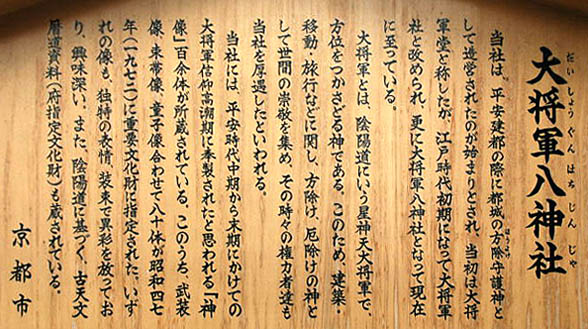 だいしょうぐんはちじんじゃ
大将軍八神社
ほうよけ
当社は、平安建都の際に都城の方除守護神と
して造営されたのが始まりとされ、当初は大将
軍堂と称したが、江戸時代初期になって大将軍
社と改められ、更に大将軍八神社となって現在
に至っている。
大将軍とは、陰陽道にいう星神天大将軍で、
方位をつかさどる神である。このため、建築・
移動・旅行などに関し、方除け、厄除けの神と
して世間の崇敬を集め、その時々の権力者達も
当社を厚遇したといわれる。
当社には、平安時代中期から末期にかけての
大将軍信仰高潮期に奉製されたと思われる「神
像」百余体が所蔵されている。このうち、武装
像、束帯像、童子像合わせて八十体が昭和四七
年(一九七二)に重要文化財に指定された。いず
れの像も、独特の表情、装束で異彩を放ってお
り、興味深い。また、陰陽道に基づく、古天文
暦道資料(府指定文化財)も蔵されている。
京都市